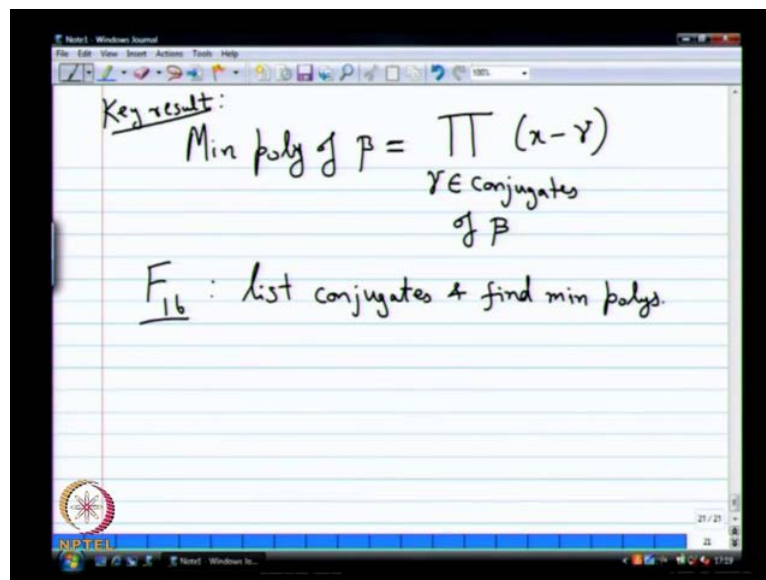 Note1 - Windows Journal
File Edit View Insert Actions Tools Help
100%
Key result:
Min poly of β = ∏ (x - γ)
γ ∈ conjugates
of β
F₁₆ : list conjugates & find min polys.
21 / 21
21
NPTEL
Note1 - Windows Jo...
17:19